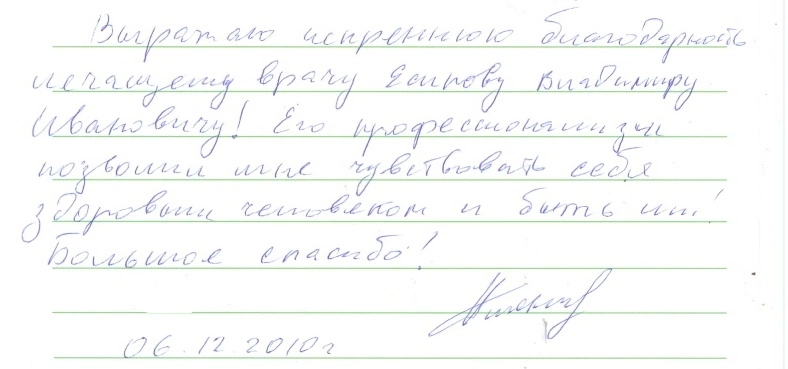 Выражаю искреннюю благодарность
лечащему врачу Есипову Владимиру
Ивановичу! Его профессионализм
позволил мне чувствовать себя
здоровым человеком и быть им!
Большое спасибо!
06.12.2010г